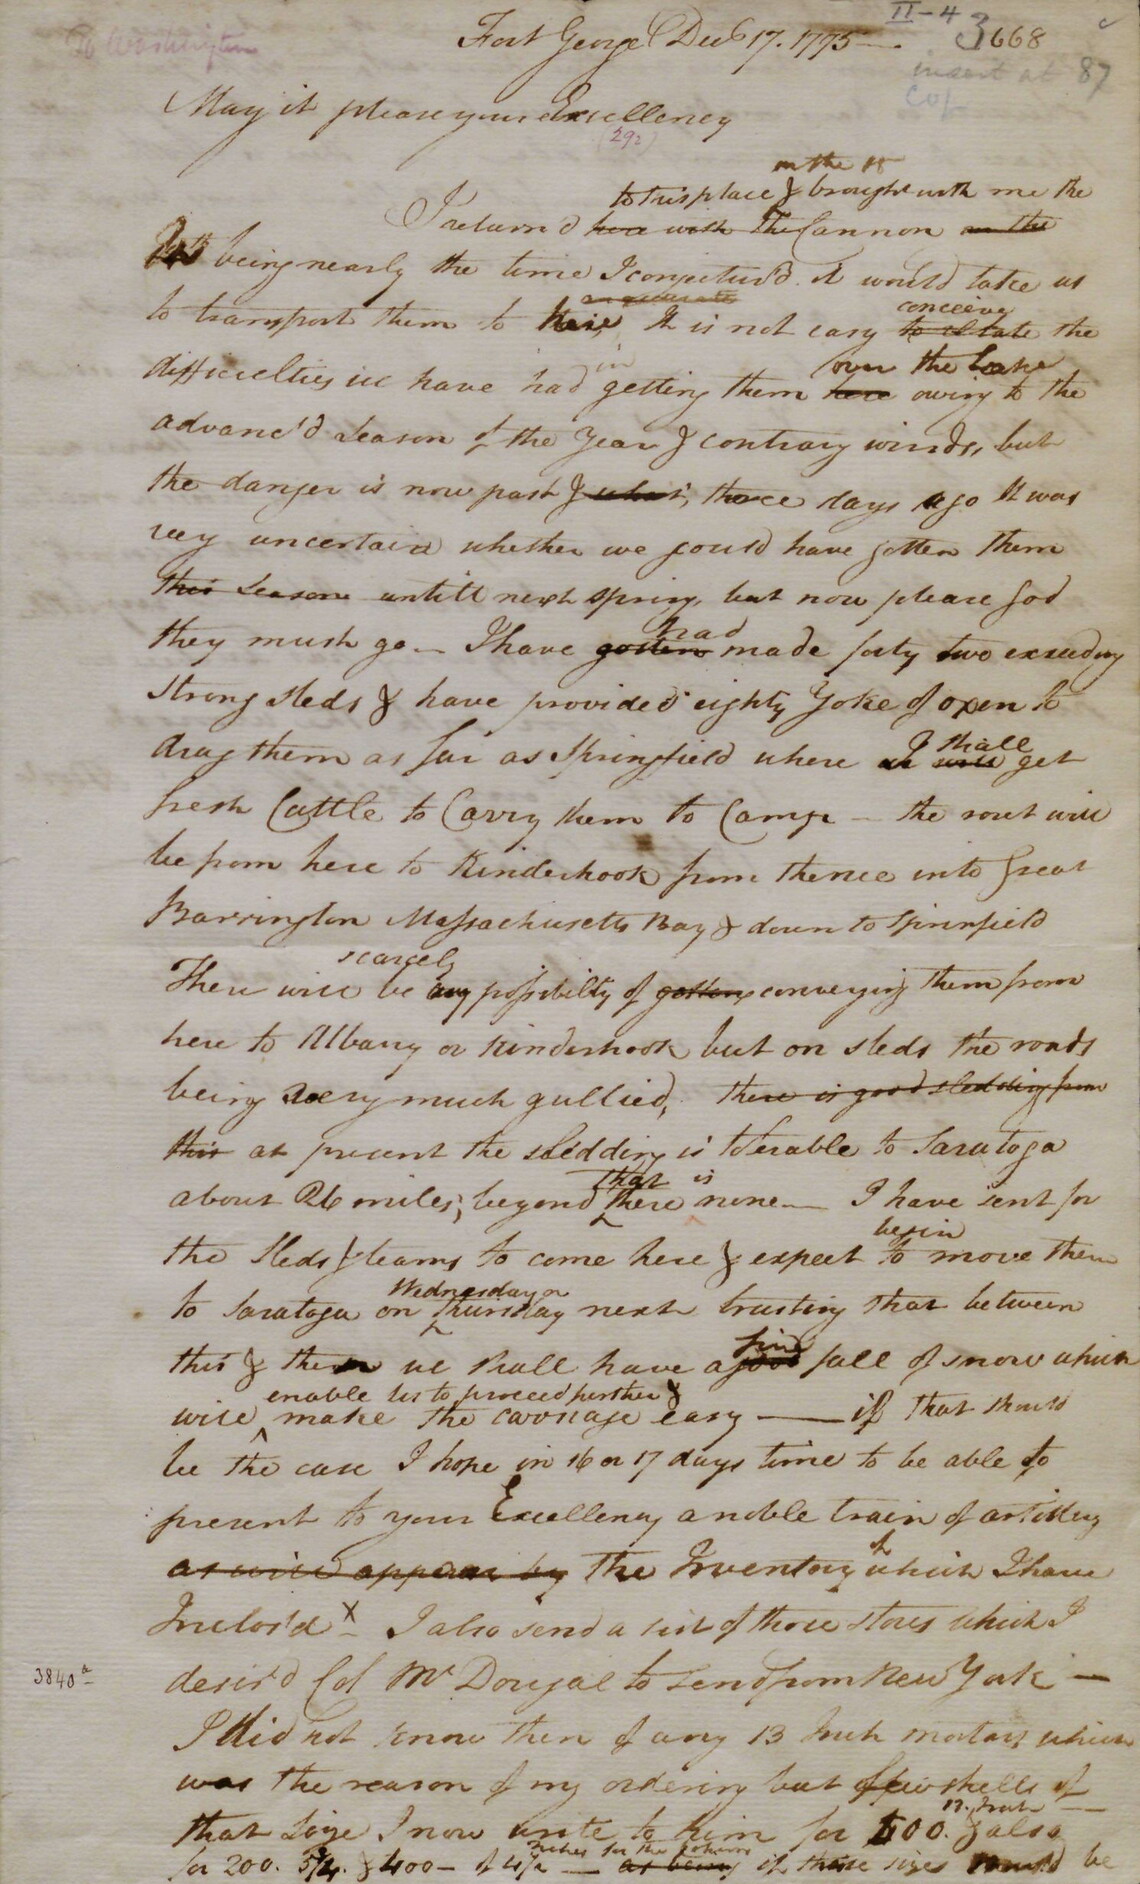 II-4
To Washington
Fort George Decr 17. 1775 —.
3668
insert at 87
cop
May it please your Excellency
(292)
on the 15
to this place & brought with me the
I return'd here with the Cannon on the
being nearly the time I conjectur'd it would take us
conceive
to transport them to here, It is not easy to the
in over the Lake
difficulties we have had getting them here owing to the
advanc'd Season of the Year & contrary winds, but
the danger is now past & three days ago It was
very uncertain whether we could have gotten them
this Season untill next spring, but now please God
had
they must go — I have gotten made forty two exceeding
strong sleds & have provided eighty Yoke of oxen to
I shall
drag them as far as Springfield where we will get
fresh Cattle to Carry them to Camp — the rout will
be from here to Kinderhook from thence into Great
Barrington Massachusetts Bay & down to Springfield
scarcely
There will be any possibilty of getting conveying them from
here to Albany or Kinderhook but on sleds the roads
being very much gullied, there is good sledding from
this at present the sledding is tolerable to Saratoga
that is
about 26 miles; beyond there none — I have sent for
begin
the sleds & teams to come here & expect to move them
Wednesday or
to Saratoga on Thursday next trusting that between
fine
this & then we shall have a good fall of snow which
enable us to proceed further &
will make the carriage easy — if that should
be the case I hope in 16 or 17 days time to be able to
present to your Excellency a noble train of artillery
of
as will appear by the Inventory which I have
Inclos'd X — I also send a list of those stores which I
3840a
desir'd Col McDougal to send from New York —
I did not know then of any 13 Inch mortars which
was the reason of my ordering but few shells of
13. Inch —
that Size I now write to him for 500. & also
Inches for the
for 200. 5¾. & 400 — of 4½ — as being if those sizes should be